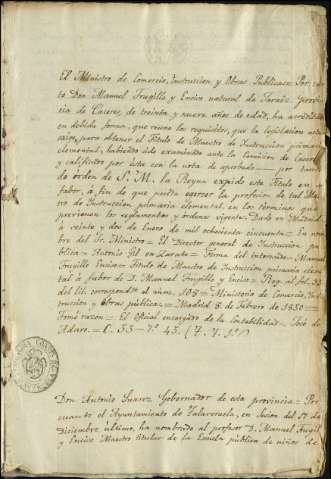 El Ministro de Comercio, Instruccion y Obras Publicas= Por cuan
to Don Manuel Trugillo y Enciso natural de Jaraiz provin
cia de Caceres, de treinta y nueve años de edad, ha acreditado
en debida forma, que reune los requisitos, que la legislacion actual
exije, para obtener el Título de Maestro de Instruccion primaria
elemental, habiendo sido examinado ante la Comision de Caceres
y calificado por esta con la nota de aprobado = por tanto
de órden de S. M. la Reyna expido este Título en su
fabor, á fin de que pueda ejercer la profesion de tal Maes
tro de Instruccion primaria elemental en los términos que
previenen los reglamentos y ordenes vigentes Dado en Madrid
á veinte y dos de enero de mil ochocientos cincuenta = En nom
bre del Sr. Ministro = El Director general de Instruccion pu
blica = Antonio Gil en Zarate = Firma del interesado = Manuel
Trugillo Enciso = Título de Maestro de Instruccion primaria elemen
tal á fabor de D. Manuel Trugillo y Enciso = Reg. al fol. 32
del lib. correspond.te al num. 108 = Ministerio de Comercio, Ins
truccion y obras públicas = Madrid 8 de Febrero de 1850 =
Tomé razon = El oficial encargado de la Contabilidad = José de
Adaro = C. 53 = nº 45.
Don Antonio Suarez Gobernador de esta provincia = Por
cuanto el Ayuntamiento de Talaveruela, en sesion del
Diciembre último, ha nombrado al profesor D. Manuel Trugill
y Enciso Maestro titular de la Escuela pública de niños de